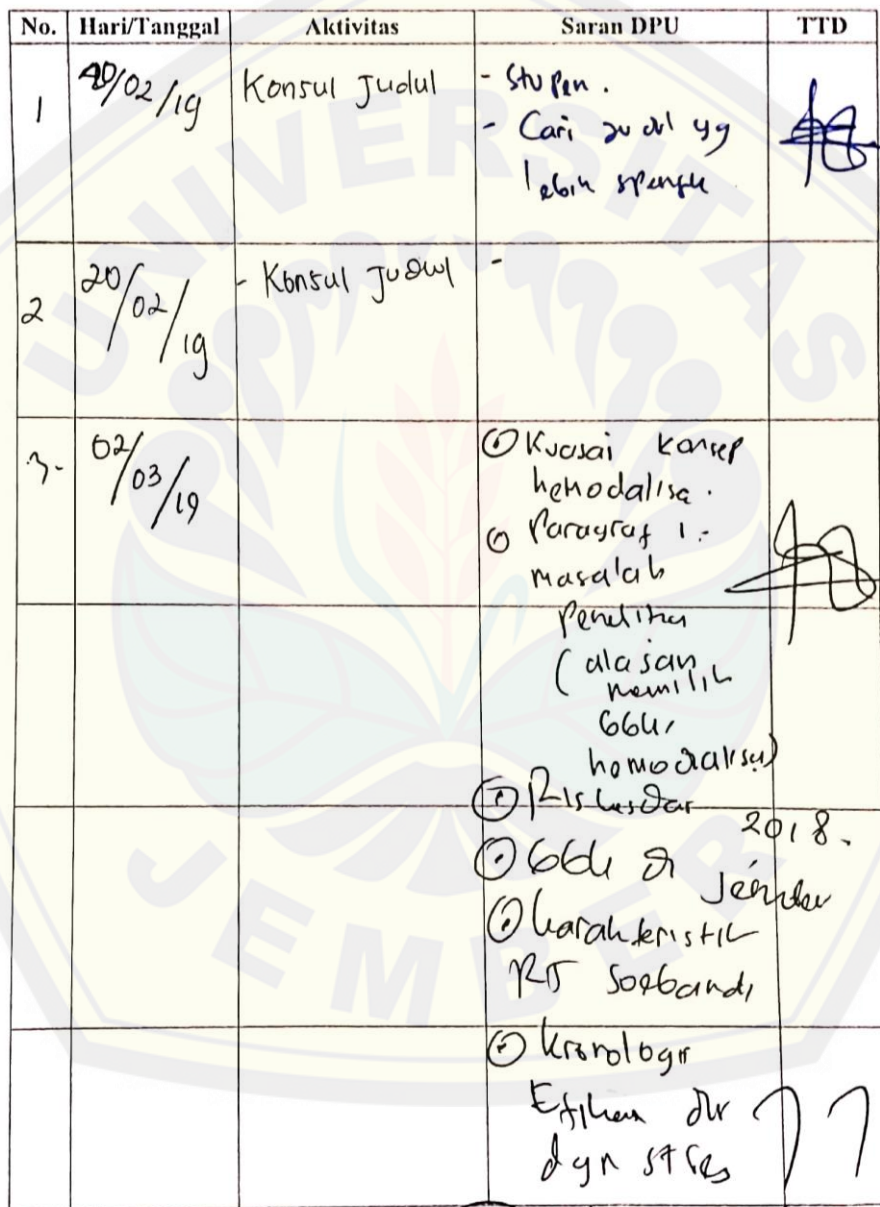 UNIVERSITAS
JEMBER
No. Hari/Tanggal Aktivitas Saran DPU TTD
1 /02/19 Konsul Judul - Stupen.
- Cari judul yg
lebih
2 20/02/19 - Konsul Judul -
3- 02/03/19 Kuasai konsep
hemodalisa.
Paragraf 1:-
masalah
Penelitian
(alasan
memilih
GGK,
hemodialisa)
Riskesdar
2018.
GGK di Jember
karakteristik
RS Soebandi
dgn stres